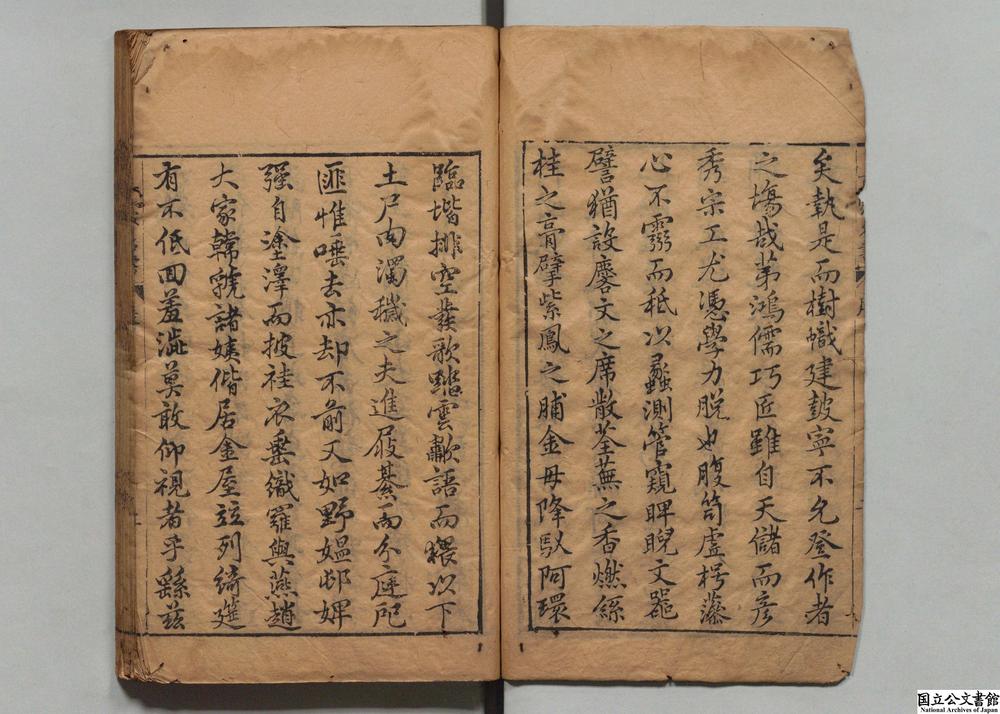 矣執是而樹幟建鼓寧不允登作者
之塲哉苐鴻儒巧匠雖自天儲而彦
秀宗工尤憑學力脱也腹笥虚枵藻
心不靈而秪以蠡測管窺睥睨文噐
譬猶設麐文之席散荃蕪之香燃絲
桂之膏擘紫鳳之脯金母降馭阿環
臨堦排空發歌踏雲歗語而猥以下
土尸肉濁穢之夫進屐綦而分庭咫
匪惟唾去亦却不前又如野媪邨婢
强自塗澤而披袿衣垂織羅與燕趙
大家韓虢諸姨偕居金屋竝列綺筵
有不低回羞澁莫敢仰視者乎繇兹
国立公文書館
National Archives of Japan